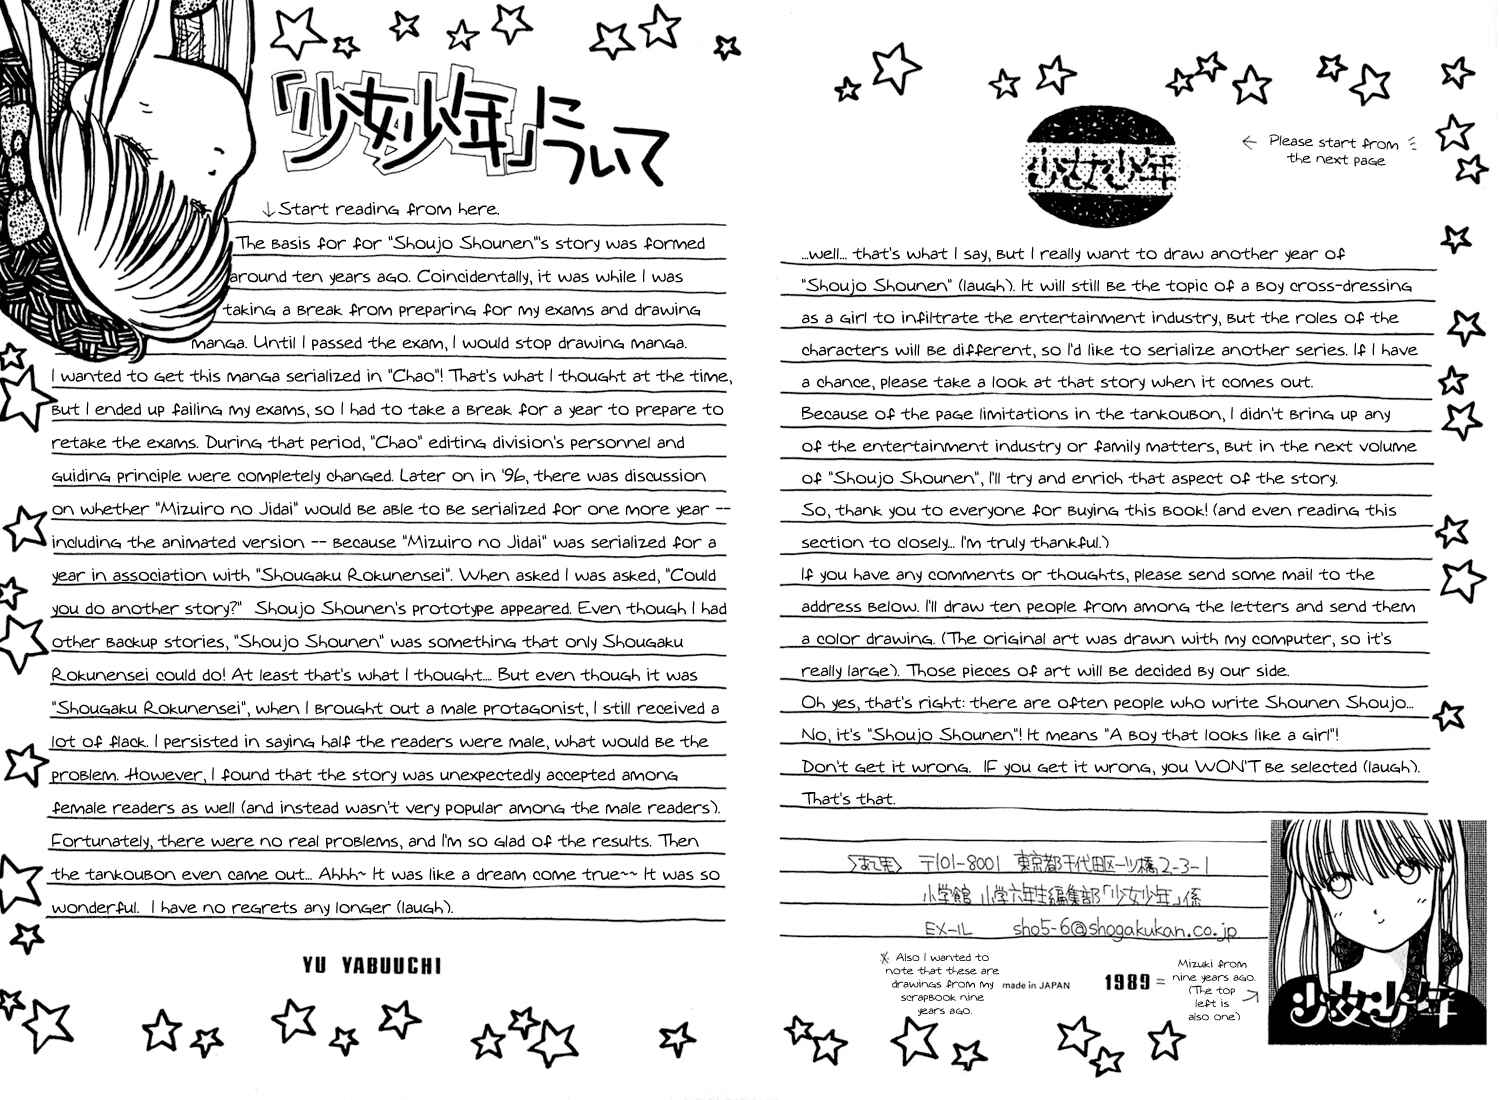 「少女少年」に
ついて
↓Start reading from here.
The basis for for "Shoujo Shounen"'s story was formed
around ten years ago. Coincidentally, it was while I was
taking a break from preparing for my exams and drawing
manga. Until I passed the exam, I would stop drawing manga.
I wanted to get this manga serialized in "Chao"! That's what I thought at the time,
but I ended up failing my exams, so I had to take a break for a year to prepare to
retake the exams. During that period, "Chao" editing division's personnel and
guiding principle were completely changed. Later on in '96, there was discussion
on whether "Mizuiro no Jidai" would be able to be serialized for one more year --
including the animated version -- because "Mizuiro no Jidai" was serialized for a
year in association with "Shougaku Rokunensei". When asked I was asked, "Could
you do another story?" Shoujo Shounen's prototype appeared. Even though I had
other backup stories, "Shoujo Shounen" was something that only Shougaku
Rokunensei could do! At least that's what I thought... But even though it was
"Shougaku Rokunensei", when I brought out a male protagonist, I still received a
lot of flack. I persisted in saying half the readers were male, what would be the
problem. However, I found that the story was unexpectedly accepted among
female readers as well (and instead wasn't very popular among the male readers).
Fortunately, there were no real problems, and I'm so glad of the results. Then
the tankoubon even came out... Ahhh~ It was like a dream come true~~ It was so
wonderful. I have no regrets any longer (laugh).
YU YABUUCHI
少女少年
← Please start from
the next page
...well... that's what I say, but I really want to draw another year of
"Shoujo Shounen" (laugh). It will still be the topic of a boy cross-dressing
as a girl to infiltrate the entertainment industry, but the roles of the
characters will be different, so I'd like to serialize another series. If I have
a chance, please take a look at that story when it comes out.
Because of the page limitations in the tankoubon, I didn't bring up any
of the entertainment industry or family matters, but in the next volume
of "Shoujo Shounen", I'll try and enrich that aspect of the story.
So, thank you to everyone for buying this book! (and even reading this
section to closely... I'm truly thankful.)
If you have any comments or thoughts, please send some mail to the
address below. I'll draw ten people from among the letters and send them
a color drawing. (The original art was drawn with my computer, so it's
really large). Those pieces of art will be decided by our side.
Oh yes, that's right: there are often people who write Shounen Shoujo...
No, it's "Shoujo Shounen"! It means "A boy that looks like a girl"!
Don't get it wrong. IF you get it wrong, you WON'T be selected (laugh).
That's that.
〈あて先〉 〒101-8001 東京都千代田区一ツ橋2-3-1
小学館 小学六年生編集部「少女少年」係
EX-IL sho5-6@shogakukan.co.jp
※ Also I wanted to
note that these are
drawings from my
scrapbook nine
years ago.
made in JAPAN
1989 =
Mizuki from
nine years ago.
(The top
left is
also one)
→
少女少年